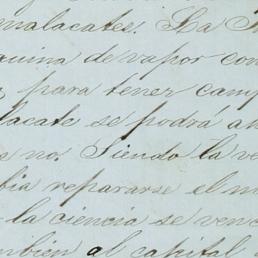 malacates. La
quina de vapor con
para tener camp
lacate se podrá
no. Siendo la ve
bia repararse el m
la ciencia se venc
mbien al capital